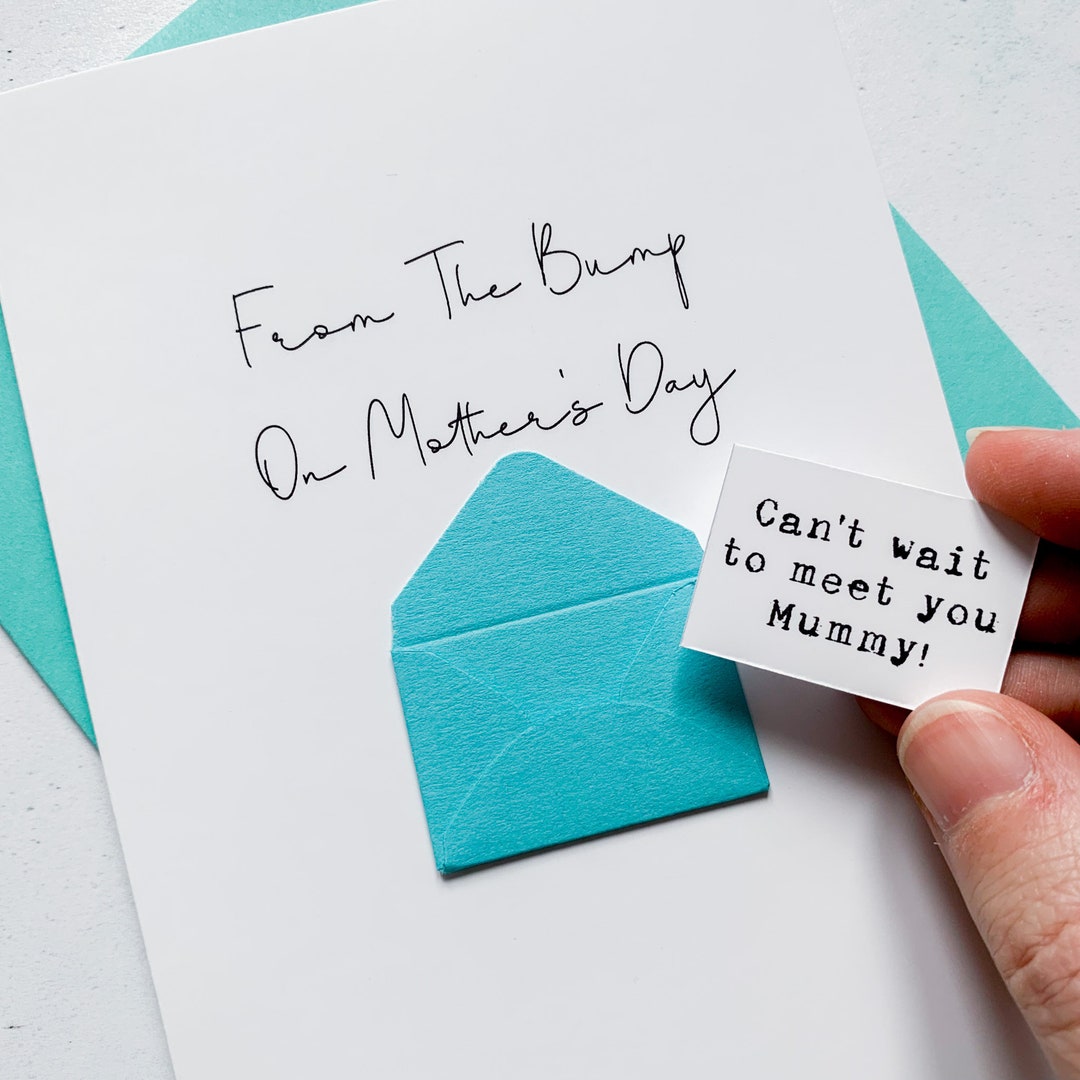 From The Bump
On Mother's Day
Can't wait
to meet you
Mummy!